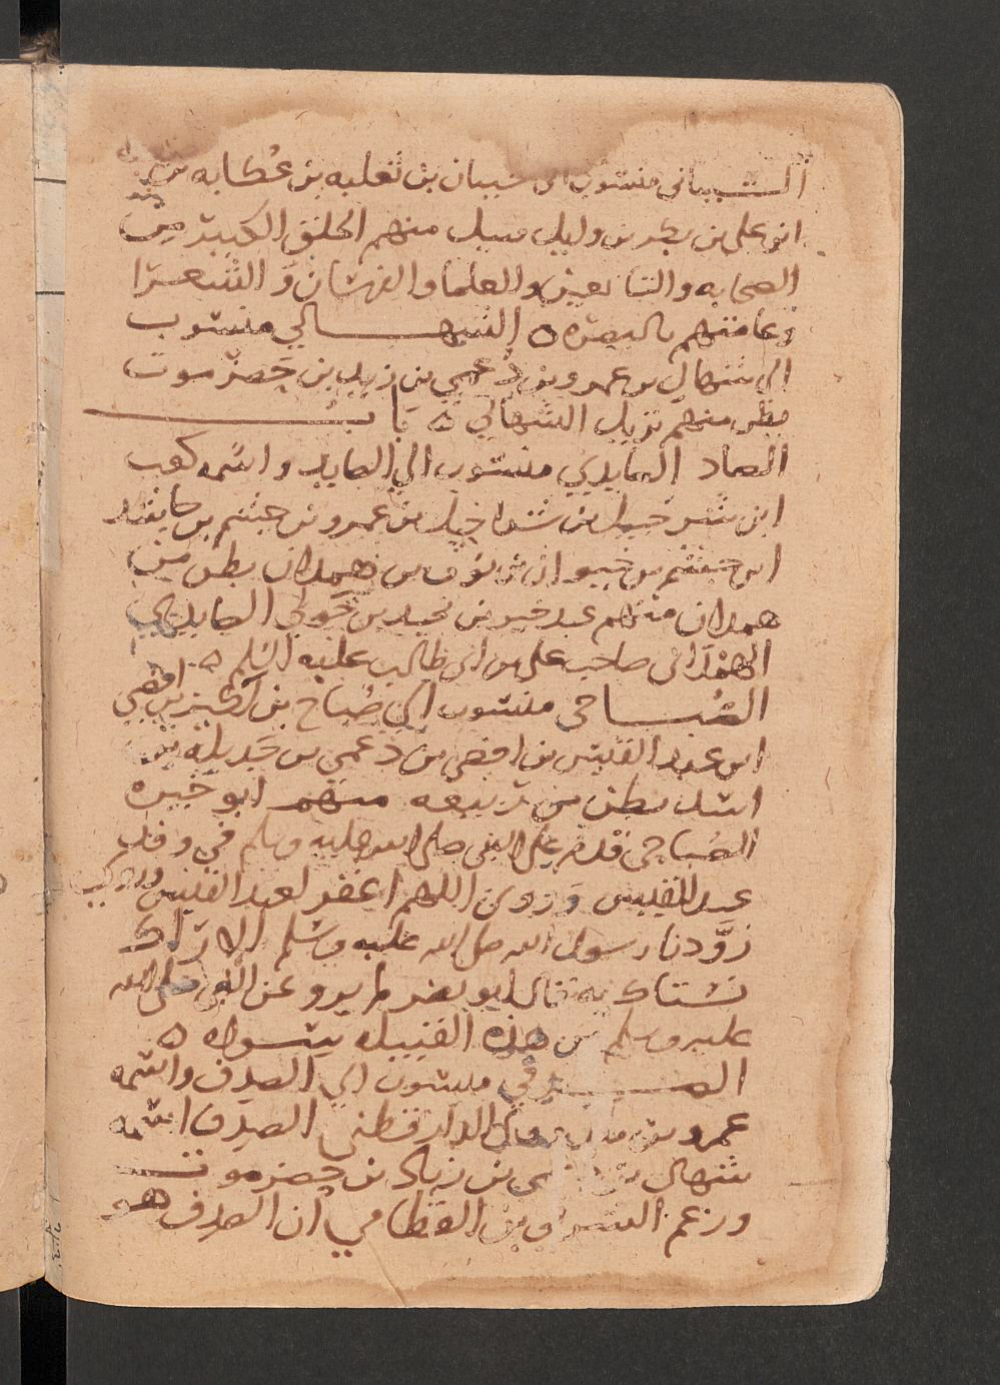 الشيباني منسوب الى شيبان بن ثعلبه بن عكابه بن
ابن على بن بكر بن وايل قبيل منهم الخلق الكبير من
الصحابه والتابعين والعلما والفرسان والشعرا
وعامتهم بالبصره ه الشهالي منسوب
الى شهال بن عمرو بن دعمي بن زيد بن حضرموت
بطن منهم يزيد الشهالي ه باب
الصاد الصايدي منسوب الي الصايد واسمه كعب
ابن شرحبيل بن شراحيل بن عمرو بن جشم بن حاشد
ابن جشم بن خيوان بن نوف بن همدان بطن من
همدان منهم عبد خير بن يحيد بن خولي الصايدي
الهمداني صاحب على بن ابى طالب عليه السلم ه
الصباحى منسوب الي صباح بن لكيز بن افصي
ابن عبد القيس بن افصي بن دعمي بن جديله بن
اسد بطن من ربيعه منهم ابو خيره
الصباحى قدم على النبي صلى الله عليه وسلم في وفد
عبد القيس وروى اللهم اغفر لعبد القيس
زودنا رسول الله صلى الله عليه وسلم الاراك
نستاك به قال ابو نصر لم يرو عن النبي صلى الله
عليه وسلم من هذه القبيله سواه ه
الصدفي منسوب الى الصدف واسمه
عمرو بن مالك وقال الدارقطني الصدف اسمه
شهال بن دعمي بن زياد بن حضرموت
وزعم الشرقي بن القطامي ان الصدف هو